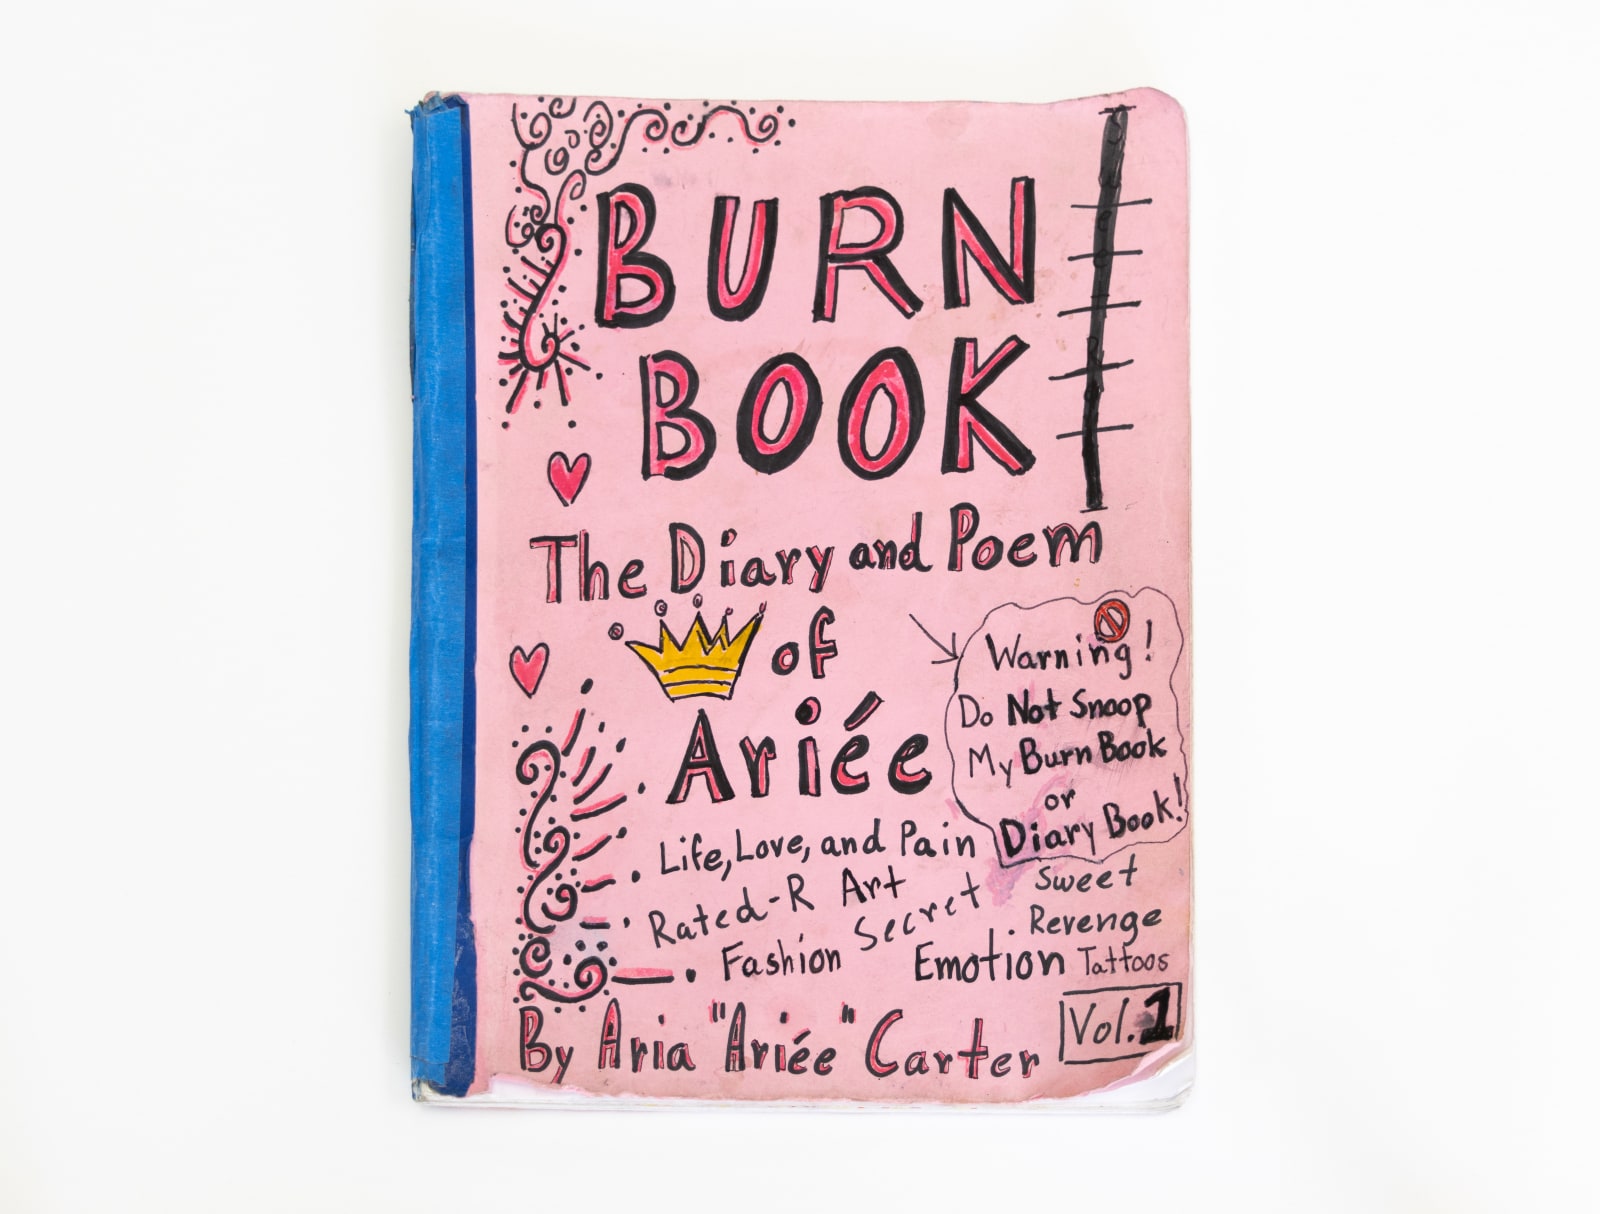 BURN
BOOK
The Diary and Poem
of
Ariée
Warning!
Do Not Snoop
My Burn Book
or
Diary Book!
Life, Love, and Pain
Rated-R Art
Fashion Secret
Emotion
Sweet
Revenge
Tattoos
By Aria "Ariée" Carter
Vol. 1